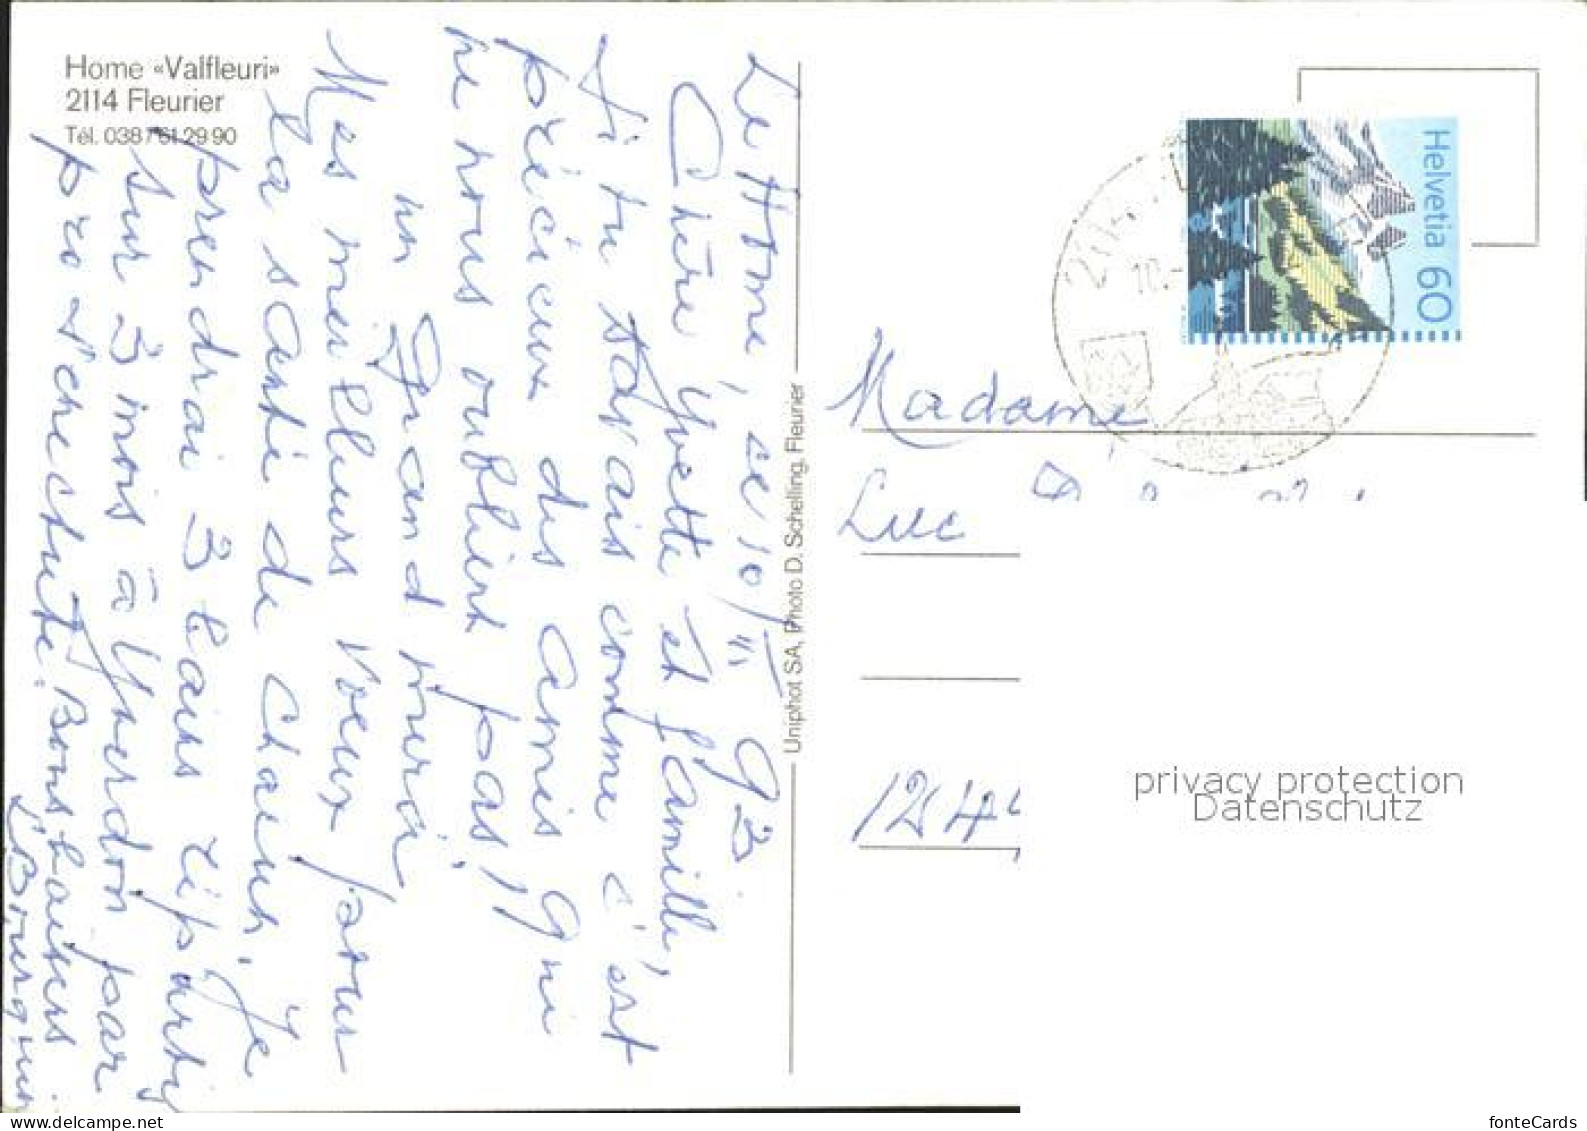 Home «Valfleuri»
2114 Fleurier
Tél. 038 / 61 29 90
Le Home, ce 10/III 92
Chère Yvette et famille,
Si tu savais comme c'est
précieux des amis qui
ne nous oublient pas,
un grand merci,
Mes meilleurs voeux pour
la santé de chacun. Je
prendrai 3 bains répartis
sur 3 mois à Yverdon par
pro Senectute. Bons baisers
L Bourquin
Uniphot SA, Photo D. Schelling, Fleurier
Helvetia 60
2114
10.
Madame
Luc
124
privacy protection
Datenschutz
fonteCards